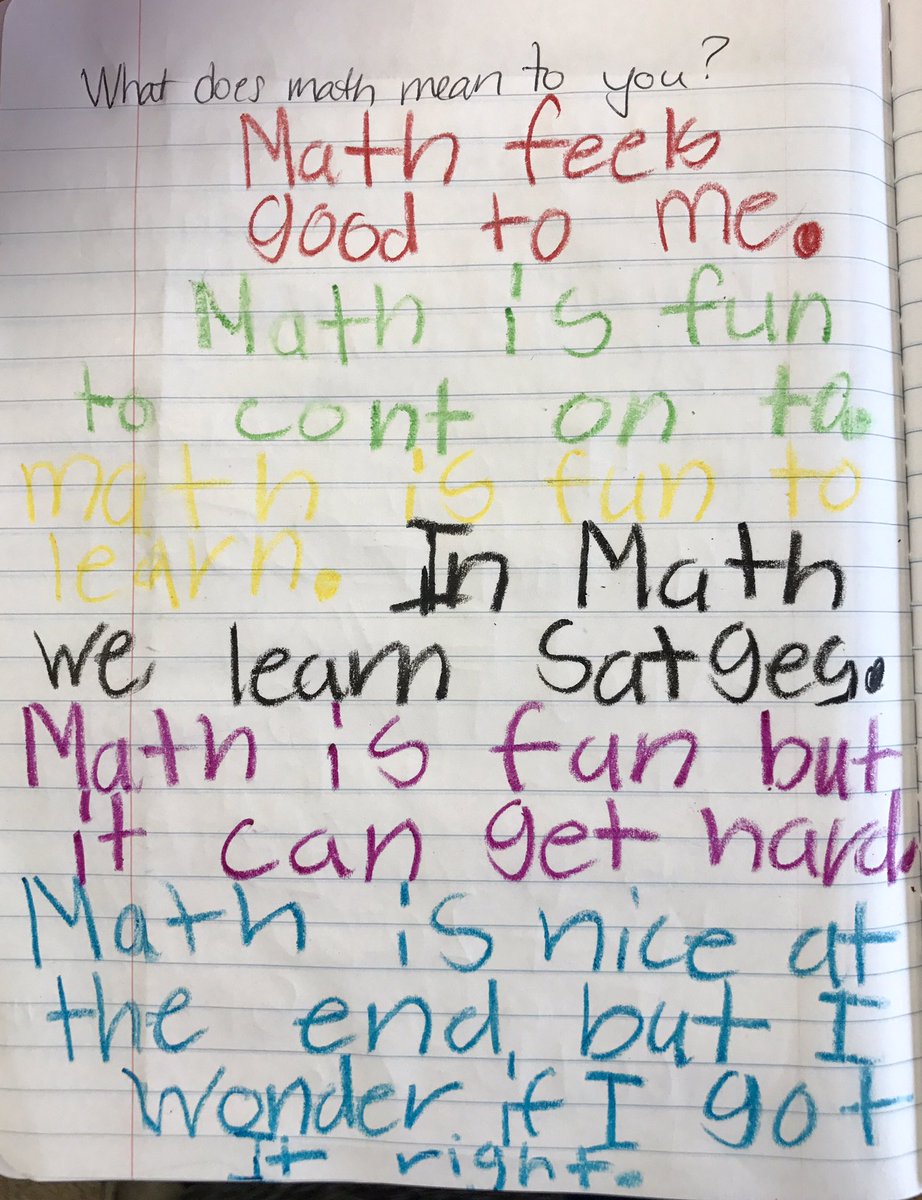 What does math mean to you?
Math feels
good to me.
Math is fun
to cont on to.
math is fun to
learn. In Math
we learn Satges.
Math is fun but
it can get hard.
Math is nice at
the end, but I
Wonder if I got
It right.